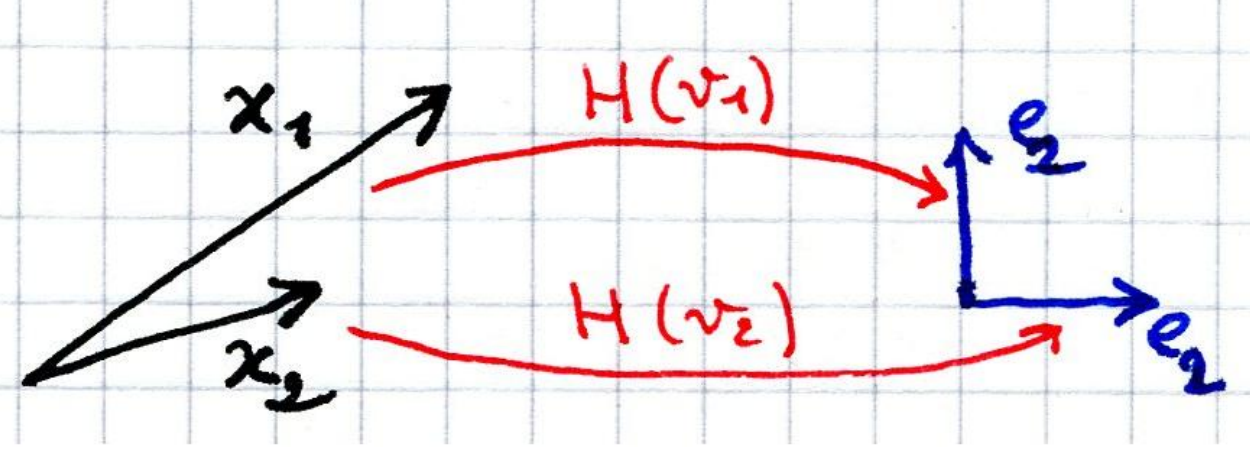 x₁
H(v₁)
e₂
x₂
H(v₂)
e₂